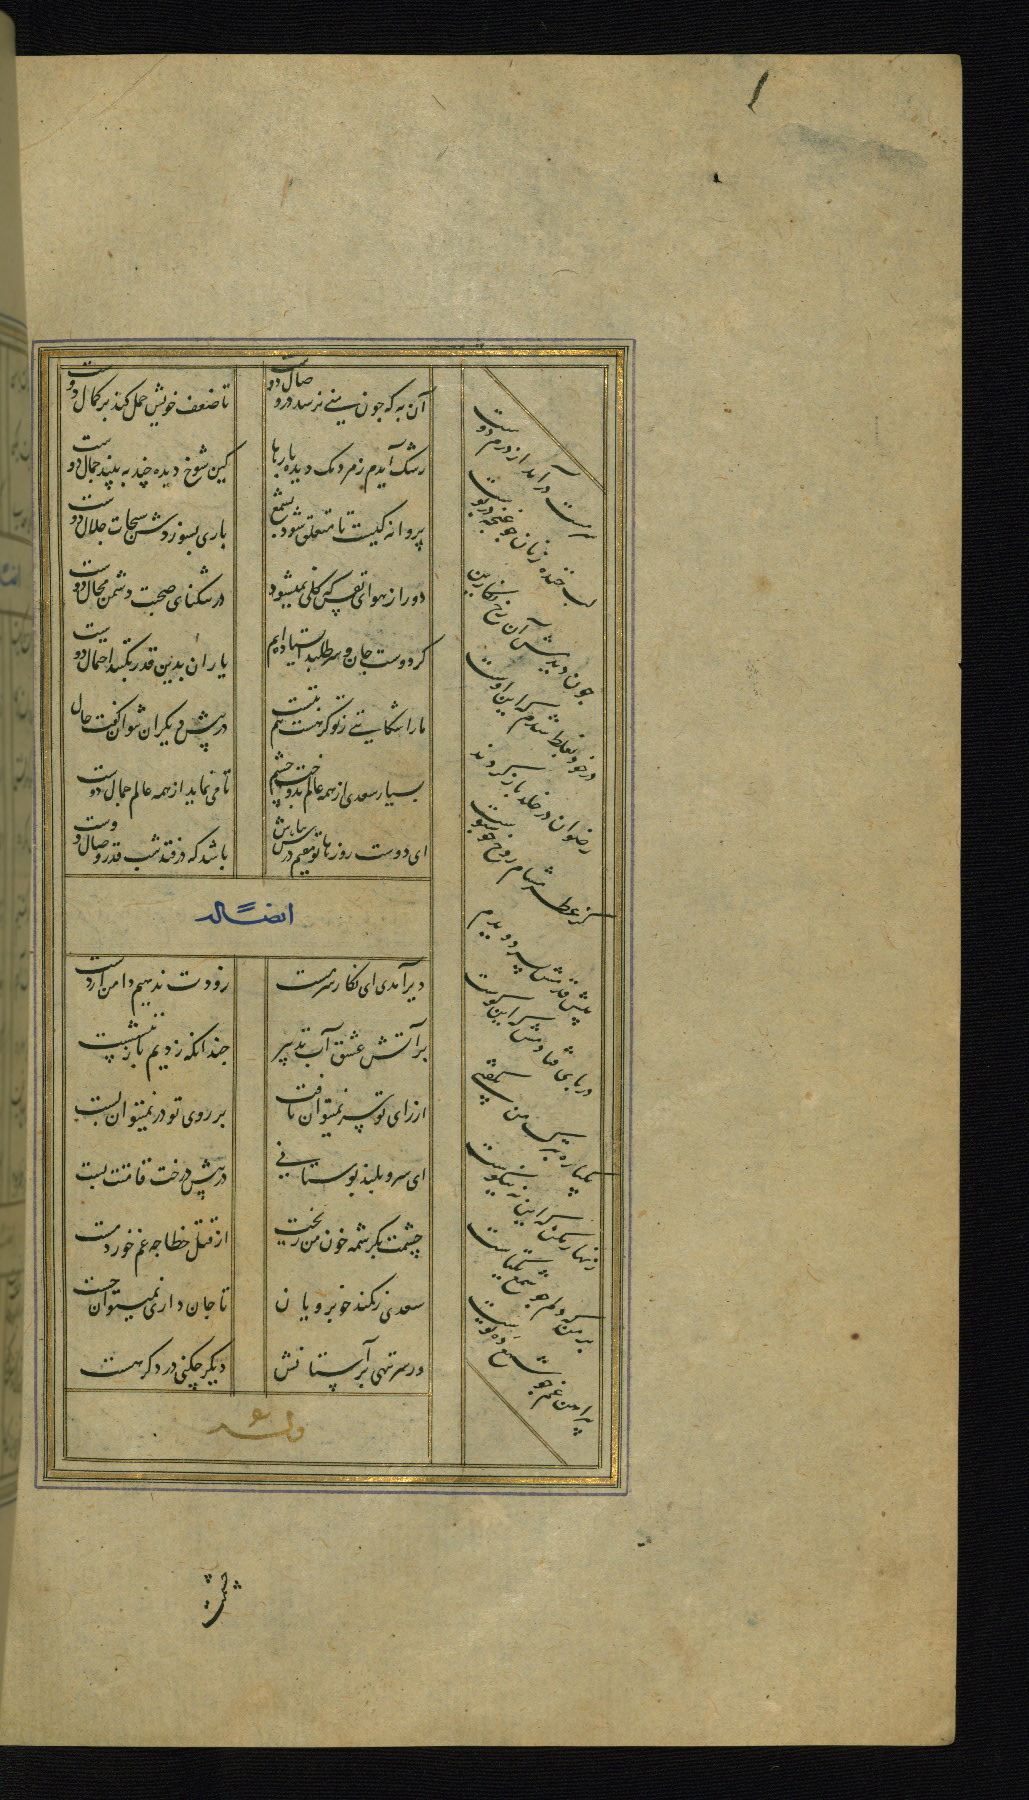 آن به که چون منی نرسد در وصال دوست تا ضعف خویش حمل کند بر کمال دوست
رشک آیدم ز مردمک دیده بارها کین شوخ دیده چند به بیند جمال دوست
پروانه کیست تا متعلق شود بشمع باری بسوزدش سبحات جلال دوست
دور از هوای نفس که کلی نمیشود در تنگنای صحبت دشمن مجال دوست
گر دوست جان و سر طلبد ایستاده‌ایم یاران بدین قدر بکنند احتمال دوست
ما را شکایتی ز تو گر هست هم بتست در پیش دیگران نتوان گفت حال
بسیار سعدی از همه عالم بدوخت چشم تا می‌نماید از همه عالم جمال دوست
ای دوست روزها تو مقیم درش بباش باشد که در فتد شب قدر وصال دوست
ایضاً له
دیر آمدی ای نگار سرمست زودت ندهیم دامن از دست
بر آتش عشق آب تدبیر چندانکه زدیم باز ننشست
از رای تو سر نمیتوان تافت بر روی تو در نمیتوان بست
ای سرو بلند بوستانی در پیش درخت قامتت پست
چشمت بکرشمه خون من ریخت از قتل خطا چه غم خورد مست
سعدی ز کمند خوبرویان تا جان داری نمیتوان جست
ور سر ننهی بر آستانش دیگر چکنی در دگر هست
وله
سرمست درآمد از درم دوست
لب خنده زنان چو غنچه در پوست
چون دیدمش آن رخ نگارین
در خود بغلط شدم که این اوست
رضوان در خلد باز کردند
کز عطر مشام روح خوشبوست
پیش قدمش بسر دویدم
در پای فتادمش که ای دوست
یکباره بترک من بگفتی
زنهار مگو که این نه نیکوست
بر من که دلم چو شمع یکتاست
پیراهن غم چو شمع ده توست
چشمت